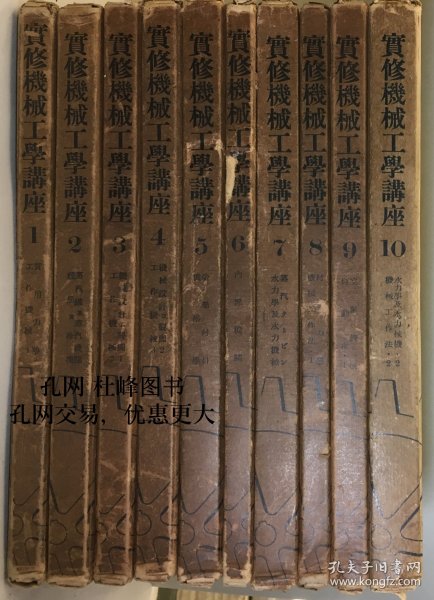 實修機械工學講座
1
工作機械
實修機械工學講座
2
實修機械工學講座
3
工作機械
實修機械工學講座
4
機械設計及製圖・2
工作機械
實修機械工學講座
5
實修機械工學講座
6
內燃機關
實修機械工學講座
7
蒸汽タービン
水力學及水力機械
實修機械工學講座
8
實修機械工學講座
9
實修機械工學講座
10
水力學及水力機械・2
機械工作法・2
孔网 杜峰图书
孔网交易，优惠更大
孔夫子旧书网
www.kongfz.com